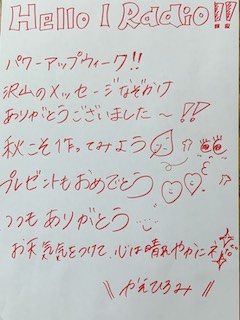 Hello I Radio!!
パワーアップウィーク!!
沢山のメッセージなぞかけ
ありがとうございました〜!!
秋こそ作ってみよう
プレゼントもおめでとう
いつもありがとう
お天気気をつけて、心は晴れやかにネ
\\ やえひろみ //